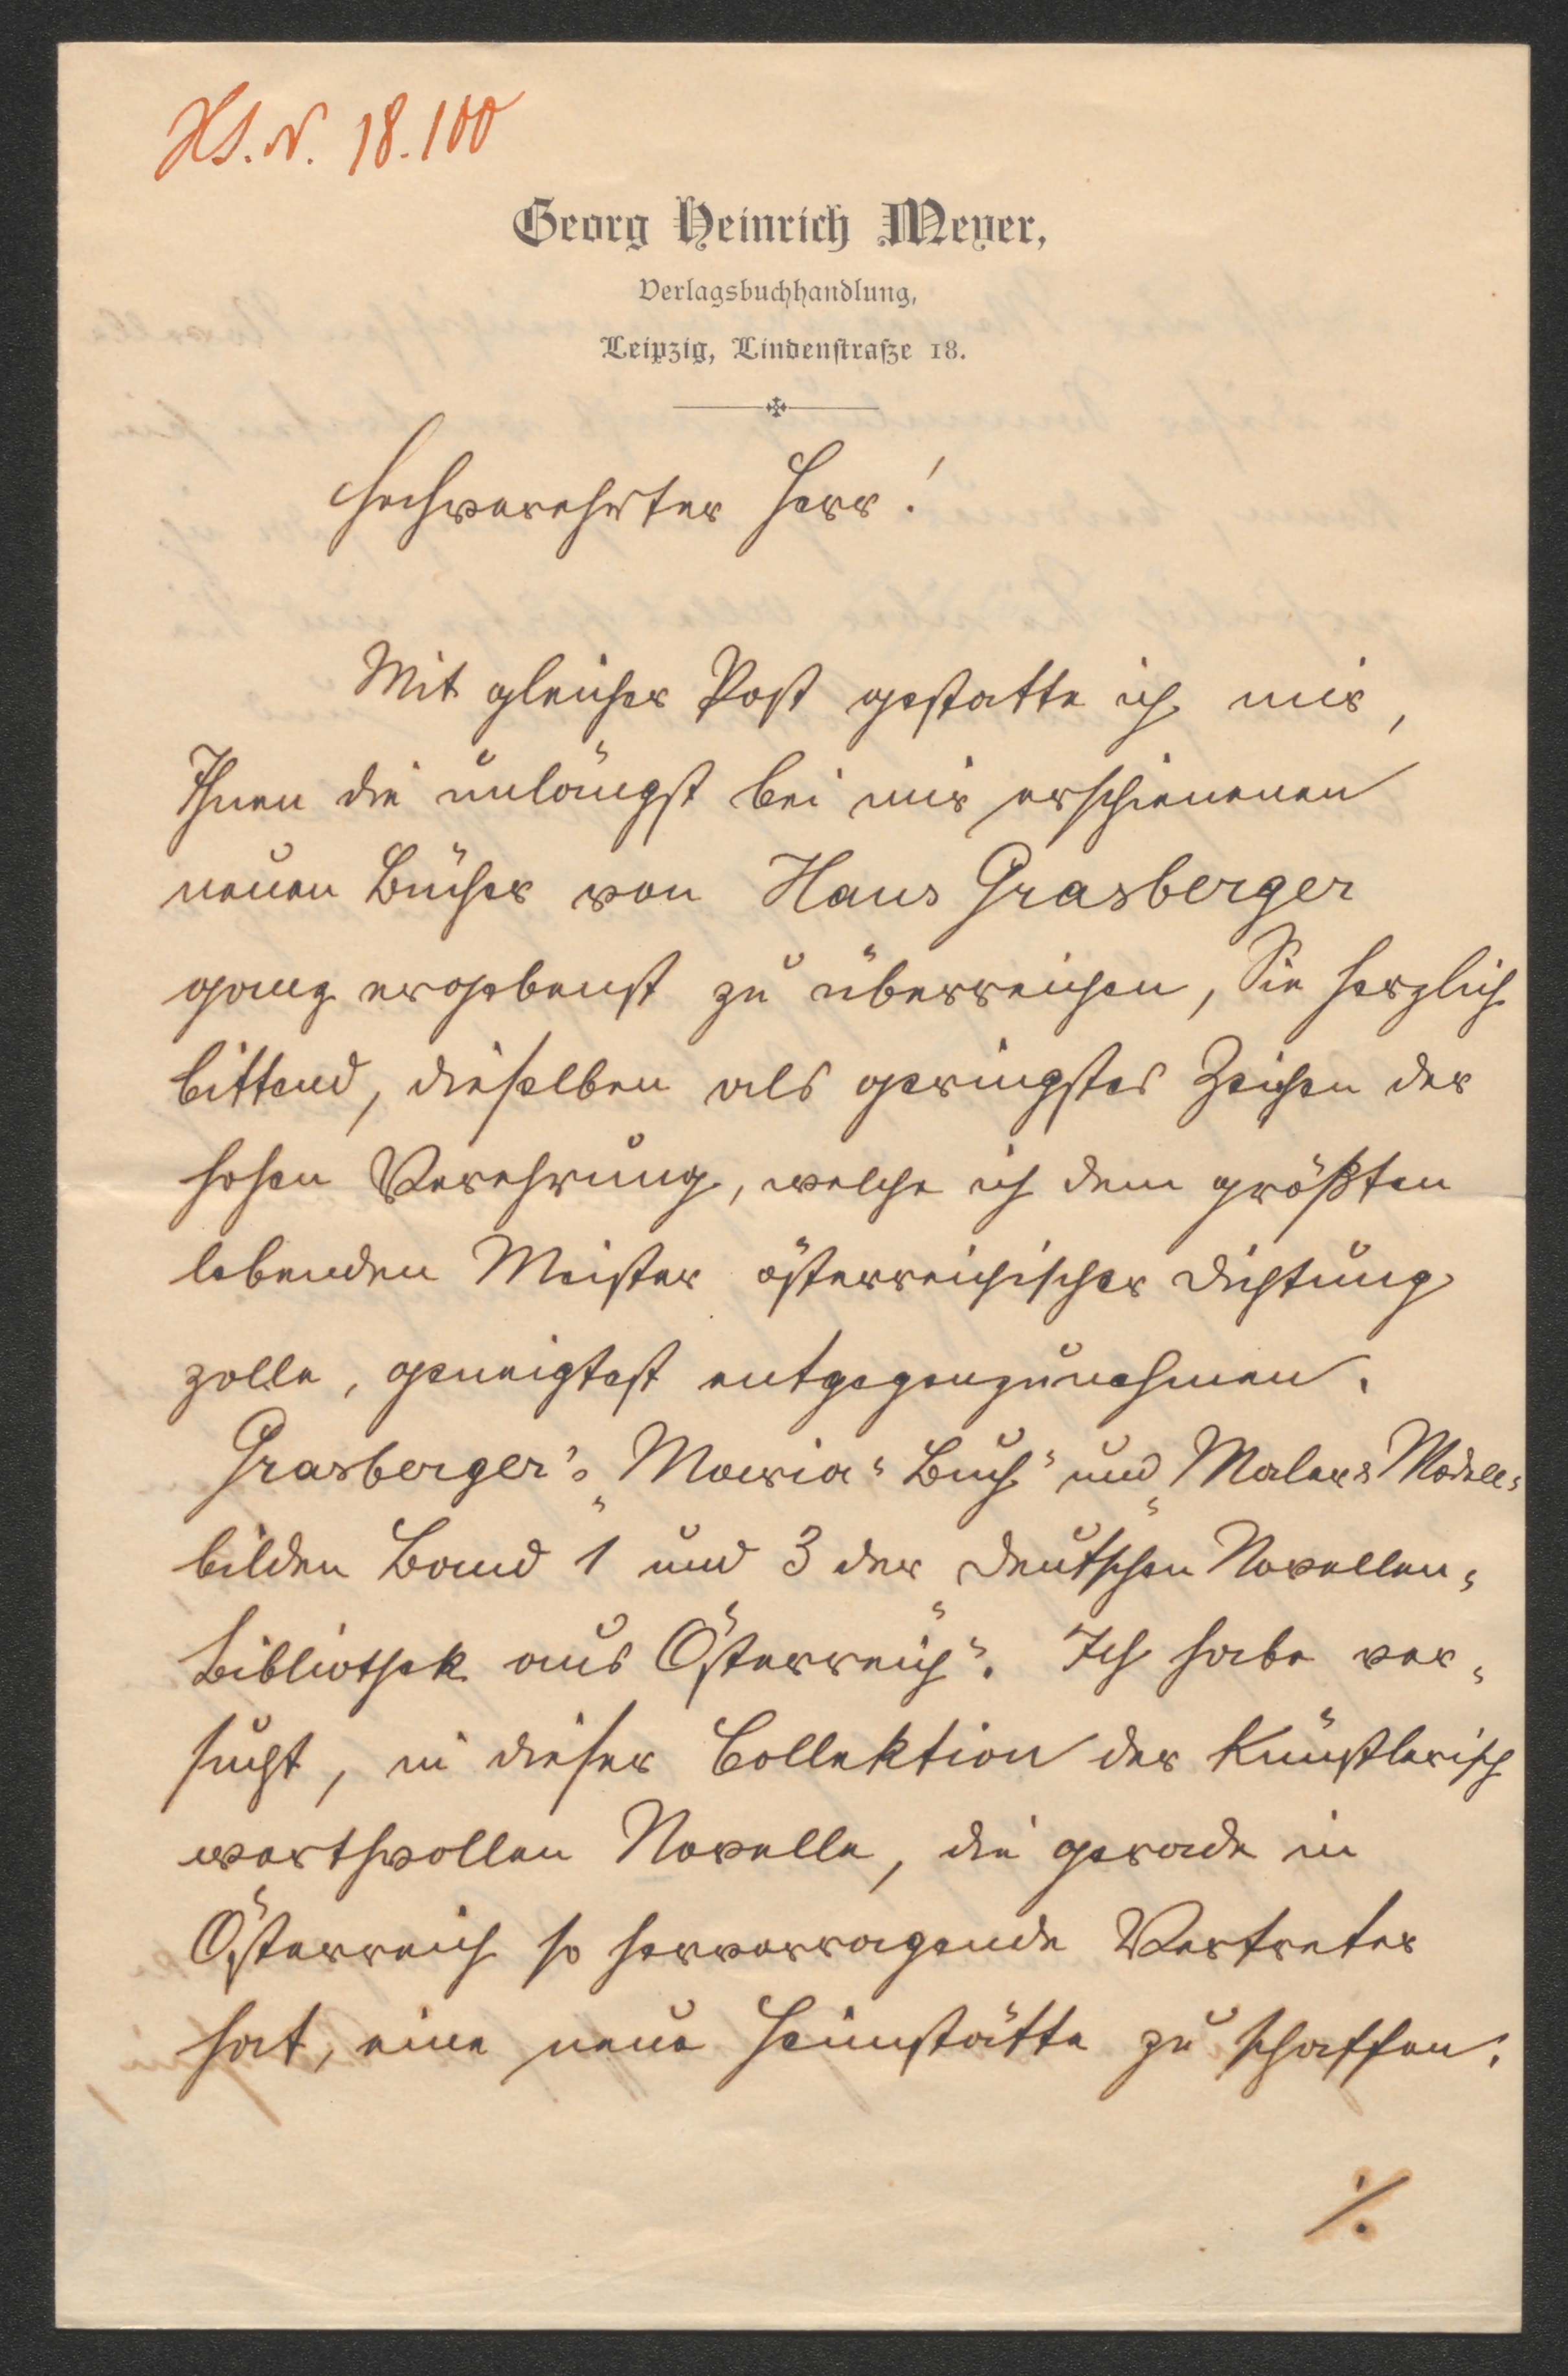 HS. N. 18.100
Georg Heinrich Meyer,
Verlagsbuchhandlung,
Leipzig, Lindenstraße 18.
Hochverehrter Herr!
Mit gleicher Post gestatte ich mir,
Ihnen die unlängst bei mir erschienenen
neuen Bücher von Hans Grasberger
ganz ergebenst zu überreichen, Sie herzlich
bittend, dieselben als geringstes Zeichen der
hohen Verehrung, welche ich dem größten
lebenden Meister österreichischer Dichtung
zolle, geneigtest entgegenzunehmen.
Grasberger's „Maria-Buch“ und „Maler & Modell“
bilden Band 1 und 3 der „Deutschen Novellen-
Bibliothek aus Österreich“. Ich habe ver-
sucht, in dieser Collektion der künstlerisch
werthvollen Novelle, die gerade in
Österreich so hervorragende Vertreter
hat, eine neue Heimstätte zu schaffen.
./.